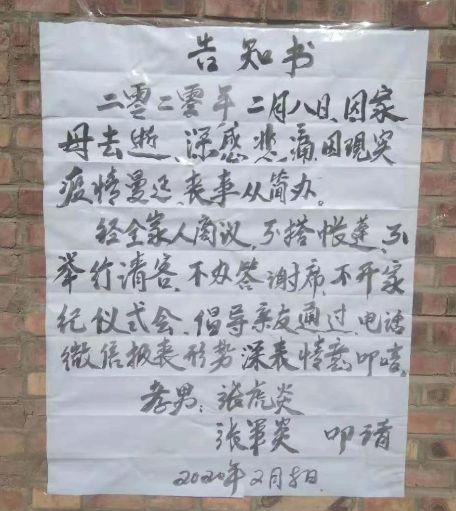 告知书
二零二零年二月八日,因家
母去逝、深感悲痛,因现实
疫情曼延,丧事从简办。
经全家人商议,不搭帐蓬,不
举行请客、不办答谢席、不开家
纪仪式会,倡导亲友通过,电话
微信报丧形势深表情意叩唁。
孝男:张虎炎
张军炎 叩请
2020年2月8日